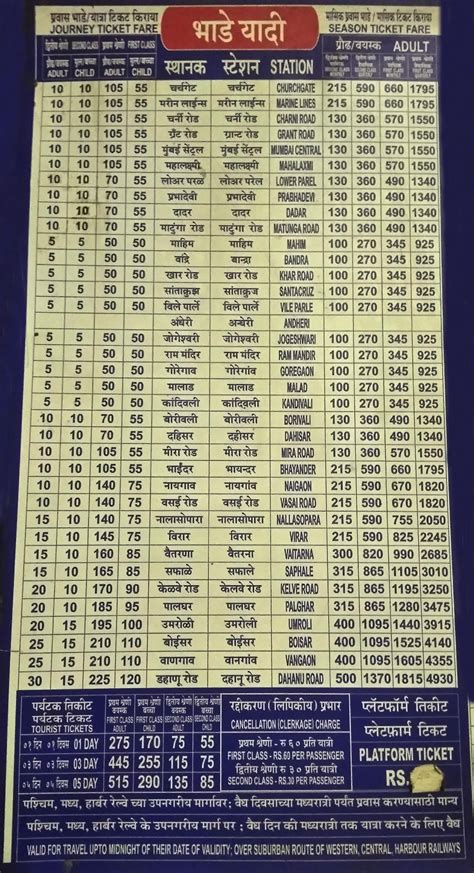 प्रवास भाडे/यात्रा टिकट किराया
JOURNEY TICKET FARE
भाडे यादी
मासिक प्रवास भाडे / मासिक टिकट किराया
SEASON TICKET FARE
द्वितीय श्रेणी SECOND CLASS प्रथम श्रेणी FIRST CLASS
प्रौढ/वयस्क ADULT
ADULT CHILD ADULT CHILD
स्थानक स्टेशन STATION
10 10 105 55 चर्चगेट चर्चगेट CHURCHGATE 215 590 660 1795
10 10 105 55 मरीन लाईन्स मरीन लाईन्स MARINE LINES 215 590 660 1795
10 10 105 55 चर्नी रोड चर्नी रोड CHARNI ROAD 130 360 570 1550
10 10 105 55 ग्रँट रोड ग्रान्ट रोड GRANT ROAD 130 360 570 1550
10 10 105 55 मुंबई सेंट्रल मुंबई सेन्ट्रल MUMBAI CENTRAL 130 360 570 1550
10 10 105 55 महालक्ष्मी महालक्ष्मी MAHALAXMI 130 360 570 1550
10 10 70 55 लोअर परळ लोअर परेल LOWER PAREL 130 360 490 1340
10 10 70 55 प्रभादेवी प्रभादेवी PRABHADEVI 130 360 490 1340
10 10 70 55 दादर दादर DADAR 130 360 490 1340
10 10 70 55 माटुंगा रोड माटुंगा रोड MATUNGA ROAD 130 360 490 1340
5 5 50 50 माहिम माहिम MAHIM 100 270 345 925
5 5 50 50 वांद्रे बान्द्रा BANDRA 100 270 345 925
5 5 50 50 खार रोड खार रोड KHAR ROAD 100 270 345 925
5 5 50 50 सांताक्रुझ सांताक्रुज SANTACRUZ 100 270 345 925
5 5 50 50 विले पार्ले विले पार्ले VILE PARLE 100 270 345 925
अंधेरी अन्धेरी ANDHERI
5 5 50 50 जोगेश्वरी जोगेश्वरी JOGESHWARI 100 270 345 925
5 5 50 50 राम मंदिर राम मंदिर RAM MANDIR 100 270 345 925
5 5 50 50 गोरेगांव गोरेगांव GOREGAON 100 270 345 925
5 5 50 50 मालाड मालाड MALAD 100 270 345 925
5 5 50 50 कांदिवली कांदिवली KANDIVALI 100 270 345 925
10 10 70 55 बोरीवली बोरीवली BORIVALI 130 360 490 1340
10 10 70 55 दहिसर दहीसर DAHISAR 130 360 490 1340
10 10 105 55 मीरा रोड मीरा रोड MIRA ROAD 130 360 570 1550
10 10 105 55 भाईंदर भायन्दर BHAYANDER 215 590 660 1795
10 10 140 75 नायगांव नायगांव NAIGAON 215 590 670 1820
10 10 140 75 वसई रोड वसई रोड VASAI ROAD 215 590 670 1820
15 10 140 75 नालासोपारा नालासोपारा NALLASOPARA 215 590 755 2050
15 10 145 75 विरार विरार VIRAR 215 590 825 2245
15 10 160 85 वैतरणा वैतरणा VAITARNA 300 820 990 2685
15 10 165 85 सफाळे सफाले SAPHALE 315 865 1105 3010
20 10 170 90 केळवे रोड केलवे रोड KELVE ROAD 315 865 1195 3250
20 10 185 95 पालघर पालघर PALGHAR 315 865 1280 3475
20 10 195 100 उमरोळी उमरोली UMROLI 400 1095 1440 3915
25 15 210 110 बोईसर बोईसर BOISAR 400 1095 1525 4140
25 15 210 110 वाणगाव वानगांव VANGAON 400 1095 1605 4355
30 15 225 120 डहाणू रोड डहाणू रोड DAHANU ROAD 500 1370 1815 4930
पर्यटक तिकीट
पर्यटक टिकट
TOURIST TICKETS
FIRST CLASS ADULT FIRST CLASS CHILD SECOND CLASS ADULT SECOND CLASS CHILD
०१ दिन ०१ दिवस 01 DAY 275 170 75 55
०३ दिन ०३ दिवस 03 DAY 445 255 115 75
०५ दिन ०५ दिवस 05 DAY 515 290 135 85
रद्दीकरण (लिपिकीय) प्रभार
CANCELLATION (CLERKAGE) CHARGE
प्रथम श्रेणी - रु ६० प्रति यात्री
FIRST CLASS - RS.60 PER PASSENGER
द्वितीय श्रेणी रु ३० प्रति यात्री
SECOND CLASS - RS.30 PER PASSENGER
प्लॅटफॉर्म तिकीट
प्लेटफ़ार्म टिकट
PLATFORM TICKET
RS.
पश्चिम, मध्य, हार्बर रेल्वे च्या उपनगरीय मार्गावर: वैध दिवसाच्या मध्यरात्री पर्यंत प्रवास करण्यासाठी मान्य
पश्चिम, मध्य, हार्बर रेलवे के उपनगरीय मार्ग पर : वैध दिन की मध्यरात्री तक यात्रा करने के लिए वैध
VALID FOR TRAVEL UPTO MIDNIGHT OF THEIR DATE OF VALIDITY: OVER SUBURBAN ROUTE OF WESTERN, CENTRAL. HARBOUR RAILWAYS